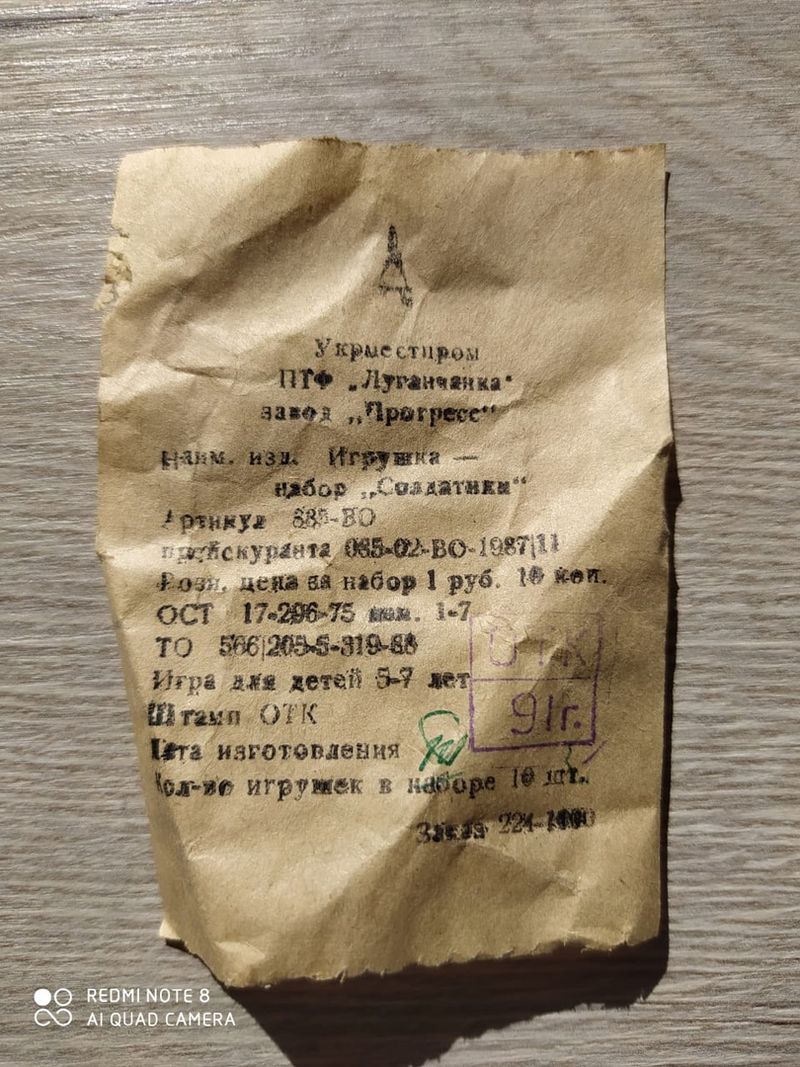 Укрместпром
ПТФ „Луганчанка"
завод „Прогресс"
Наим. изд. Игрушка —
набор „Солдатики"
Артикул 885-ВО
прейскуранта 085-02-ВО-1987|11
Розн. цена за набор 1 руб. 10 коп.
ОСТ 17-296-75 1-7
ТО
Игра для детей 5-7 лет
Штамп ОТК
ОТК
91г.
Дата изготовления
Кол-во игрушек в наборе 10 шт.
Заказ
REDMI NOTE 8
AI QUAD CAMERA